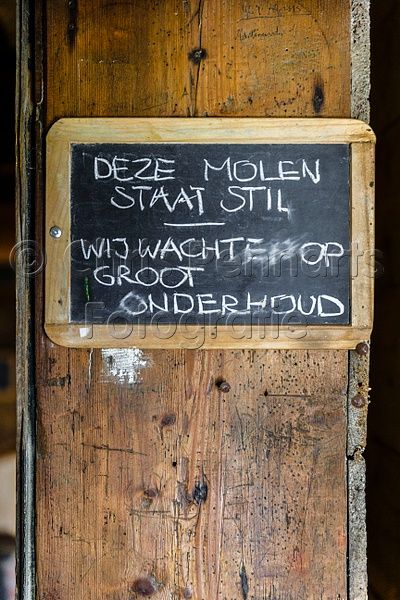 DEZE MOLEN
STAAT STIL
WIJ WACHTEN OP
GROOT
ONDERHOUD
Fotografie